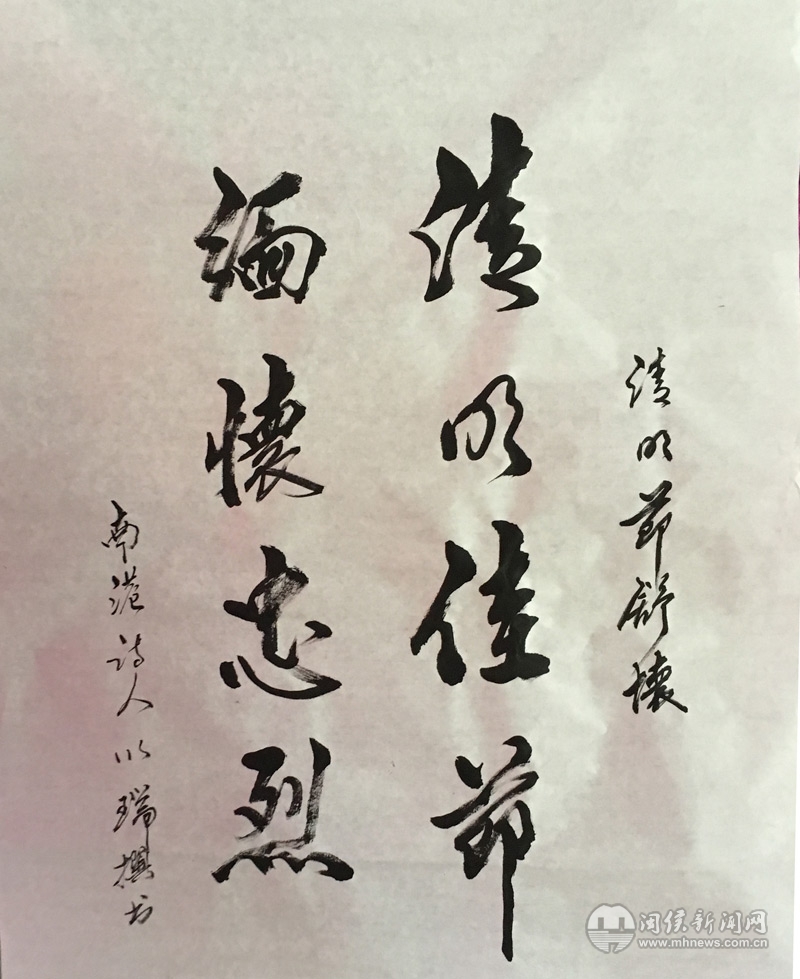 清明节舒懷
清明佳节
缅懷忠烈
南港诗人以瑞撰书
闽侯新闻网
www.mhnews.com.cn